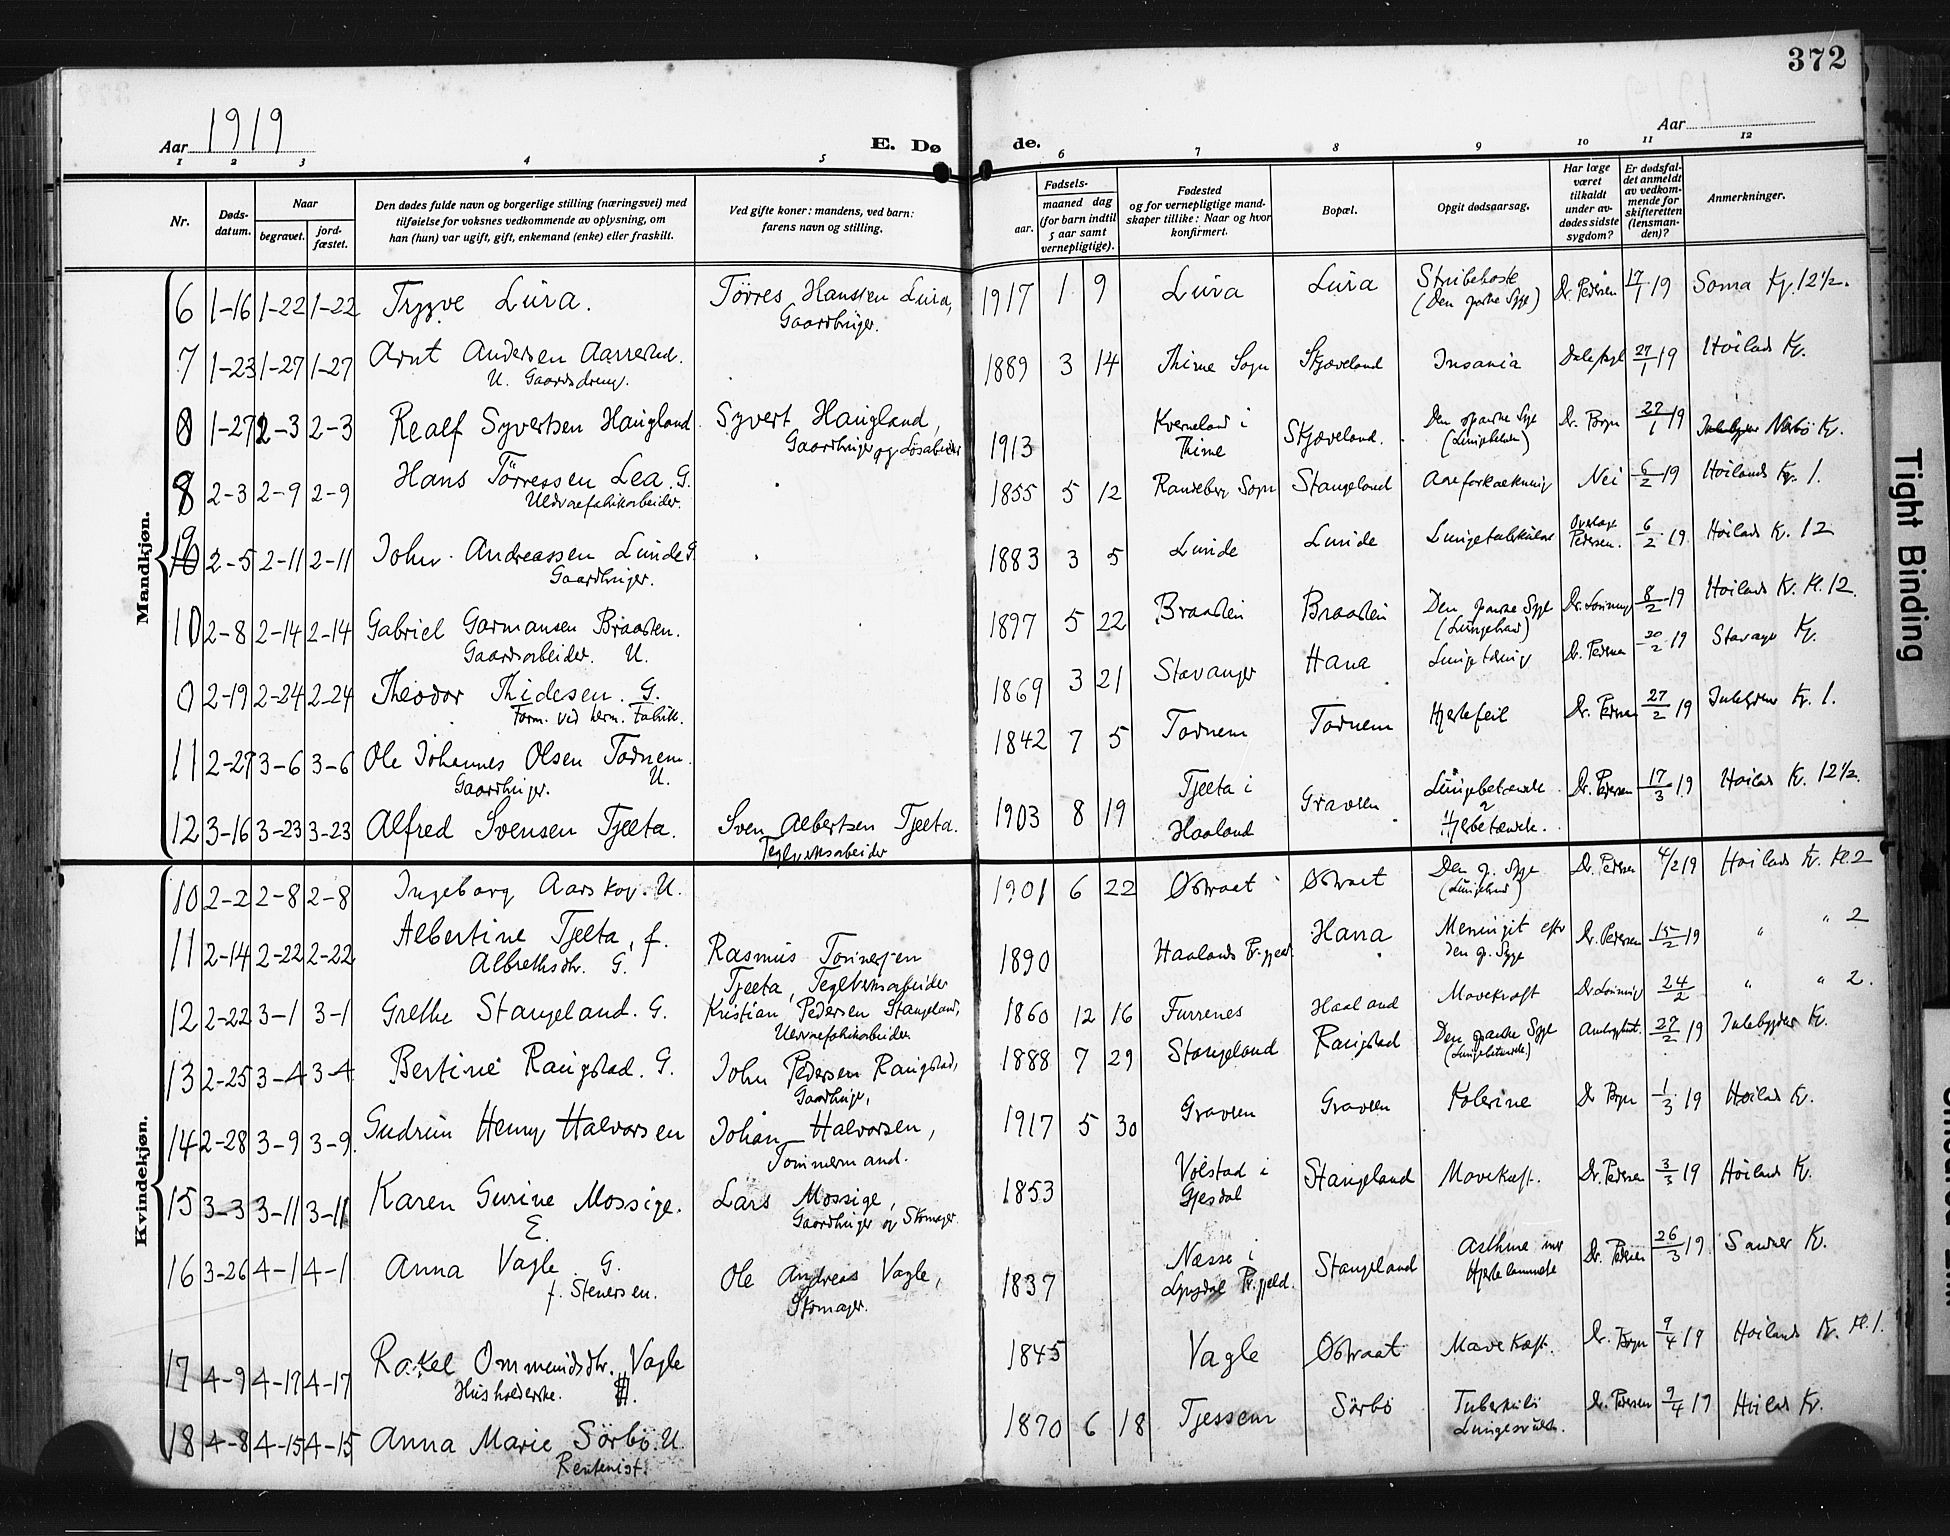 372
Aar 1919
E. Dø
de.
Aar
1 2 3 4 5 6 7 8 9 10 11 12
Nr.
Døds-
datum.
Naar
begravet.
jord-
fæstet.
Den dødes fulde navn og borgerlige stilling (næringsvei) med
tilføielse for voksnes vedkommende av oplysning, om
han (hun) var ugift, gift, enkemand (enke) eller fraskilt.
Ved gifte koner: mandens, ved barn:
farens navn og stilling.
Fødsels-
aar.
maaned dag
(for barn indtil
5 aar samt
vernepligtige).
Fødested
og for vernepligtige mand-
skaper tillike: Naar og hvor
konfirmert.
Bopæl.
Opgit dødsaarsag.
Har læge
været
tilkaldt
under av-
dødes sidste
sygdom?
Er dødsfal-
det anmeldt
av vedkom-
mende for
skifteretten
(lensman-
den)?
Anmerkninger.
Mandkjøn.
6 1-16 1-22 1-22 Trygve Lura. Tørres Hanssen Lura, Gaardbruger. 1917 1 9 Lura Lura Strubehoste (Den spanske Syge) Dr. Pedersen 17/1 19 Soma Kg. 12½.
7 1-23 1-27 1-27 Arnt Andersen Aanestad. U. Gaardsdreng. 1889 3 14 Thime Sogn Skjæveland Insania 27/1 19 Höilands Kg.
8 1-27 2-3 2-3 Realf Syvertsen Haugland. Syvert Haugland, Gaardbruger og Løsarbeider 1913 Kverneland i Thime Skjæveland. Den spanske Syge Dr. Bryn 27/1 19 Nærbö Kg.
8 2-3 2-9 2-9 Hans Tørressen Lea. G. Uldvarefabrikarbeider. 1855 5 12 Randeberg Sogn Stangeland Aareforkalkning Nei 6/2 19 Höilands Kg. 1.
9 2-5 2-11 2-11 John Andreassen Lunde G. Gaardbruger. 1883 3 5 Lunde Lunde Lungetuberkulose Overlæge Pedersen. 6/2 19 Höilands Kg. 12
10 2-8 2-14 2-14 Gabriel Garmansen Braasten. Gaardsarbeider. U. 1897 5 22 Braastein Braastein Den spanske Syge 8/2 19 Höilands Kg. Kl. 12.
0 2-19 2-24 2-24 Theodor Thidesen. G. Form. ved herm. Fabrik. 1869 3 21 Stavanger Hana Dr. Pedersen 20/2 19 Stavanger Kg.
11 2-27 3-6 3-6 Ole Johannes Olsen Tornem. Gaardbruger. U. 1842 7 5 Tornem Tornem Hjertefeil Dr. Pedersen 27/2 19 Julebygdens Kg. 1.
12 3-16 3-23 3-23 Alfred Svensen Tjelta. Sven Albertsen Tjelta. Teglverksarbeider 1903 8 19 Tjelta i Haaland Graveren Lungebetændelse Dr. Pedersen 17/3 19 Höilands Kg. 12½.
Kvindekjøn.
10 2-2 2-8 2-8 Ingeborg Aarskog. U. 1901 6 22 Østraat Østraat Den sp. Syge Dr. Pedersen 4/2 19 Höilands Kg. Kl. 2
11 2-14 2-22 2-22 Albertine Tjelta, f. Albrethsdtr. G. Rasmus Tønnessen Tjelta, Teglverksarbeider 1890 Haalands Pr.gjeld. Hana Meningit efter den sp. Syge Dr. Pedersen 15/2 19 " " 2
12 2-22 3-1 3-1 Grethe Stangeland. G. Kristian Pedersen Stangeland, Uldvarefabrikarbeider 1860 12 16 Furrenes Haaland Mavekræft 24/2 " " 2.
13 2-25 3-4 3-4 Bertine Raugstad. G. John Pedersen Raugstad, Gaardbruger, 1888 7 29 Stangeland Raugstad Den spanske Syge (Lungebetændelse) 27/2 19 Julebygdens Kg.
14 2-28 3-9 3-9 Gudrun Henny Halvorsen Johan Halvorsen, Tømmermand. 1917 5 30 Graveren Graveren Kolerine Dr. Bryn 1/3 19 Höilands Kg.
15 3-3 3-11 3-11 Karen Gurine Mossige. E. Lars Mossige, Gaardbruger og Skomager. 1853 Volstad i Gjesdal Stangeland Mavekræft. Dr. Pedersen 3/3 19 Höilands Kg.
16 3-26 4-1 4-1 Anna Vagle. G. f. Stenersen. Ole Andreas Vagle, Skomager. 1837 Næsse i Lyngdal Pr.gjeld. Stangeland Asthma med Hjertelammelse Dr. Pedersen 26/3 19 Sandnes Kg.
17 4-9 4-17 4-17 Rakel Ommundsdtr. Vagle Husholderske. 1845 Vagle Østraat Mavekræft. Dr. Bryn 9/4 19 Höilands Kg. Kl. 1.
18 4-8 4-15 4-15 Anna Marie Sörbö. U. Rentenist. 1870 6 18 Tjessem Sörbö Dr. Pedersen 9/4 19 Höilands Kg.
Tight Binding